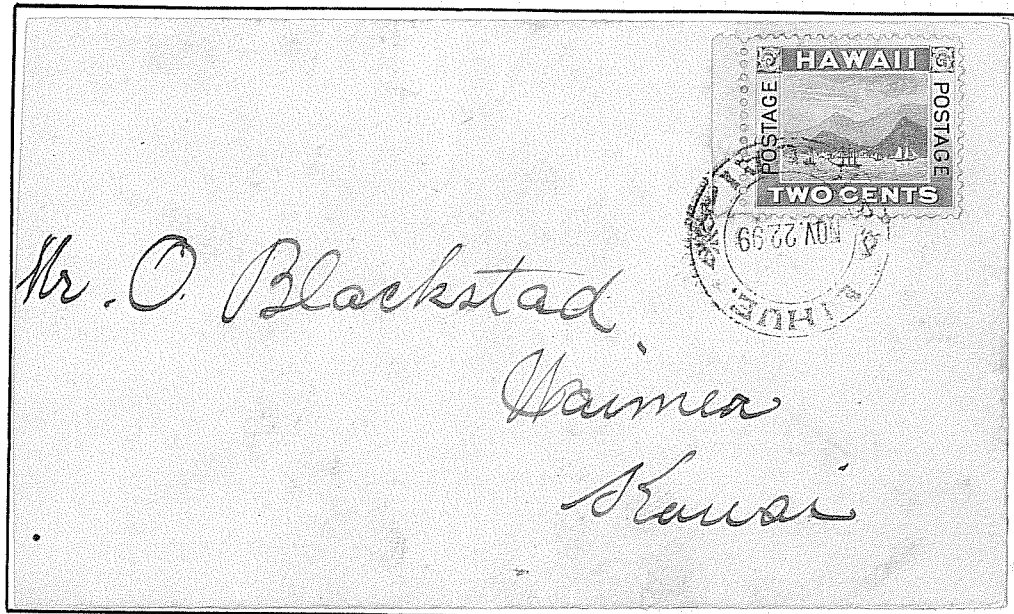 HAWAII
POSTAGE
POSTAGE
TWO CENTS
LIHUE.
NOV. 22 99
Mr. O. Blackstad
Waimea
Kauai